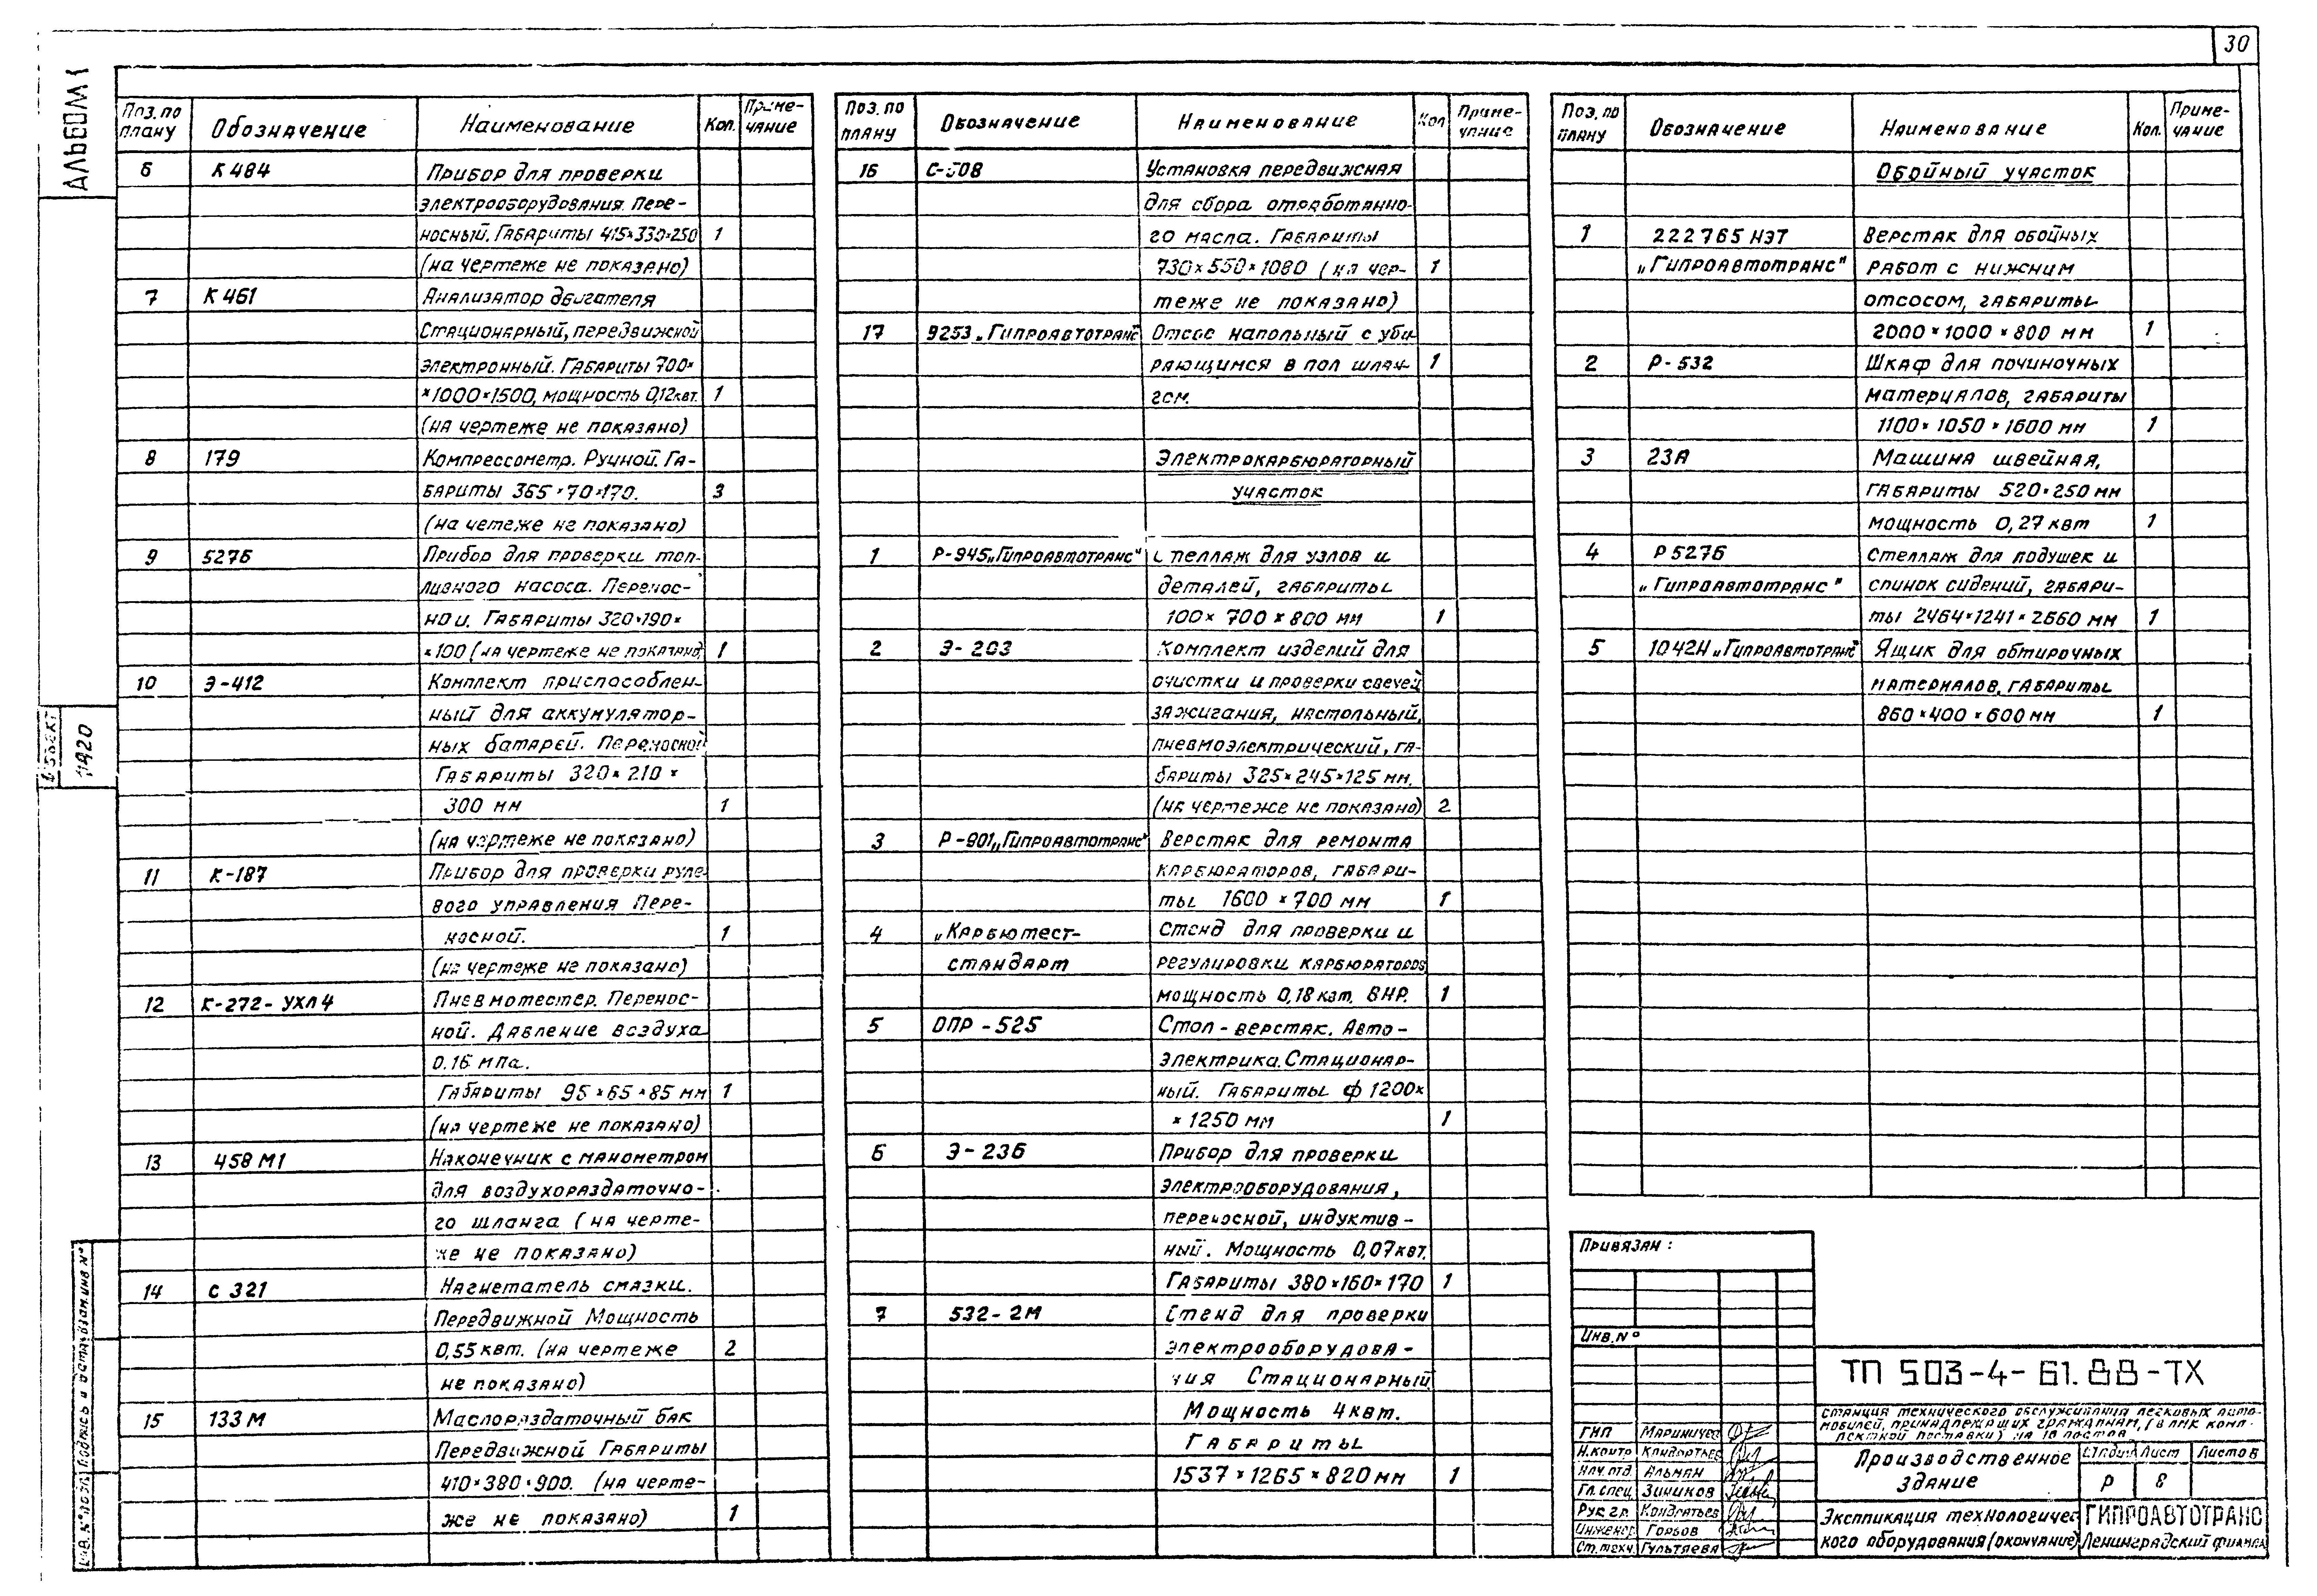 30
АЛЬБОМ 1
Поз. по плану Обозначение Наименование Кол. Примечание
6 К 484 Прибор для проверки
электрооборудования. Пере-
носный. Габариты 415×330×250 1
(на чертеже не показано)
7 К 461 Анализатор двигателя
Стационарный, передвижной
электронный. Габариты 700×
×1000×1500, мощность 0,12 квт. 1
(на чертеже не показано)
8 179 Компрессометр. Ручной. Га-
бариты 365×70×170. 3
(на четеже не показано)
9 527Б Прибор для проверки топ-
ливного насоса. Перенос-
ной. Габариты 320×190×
×100 (на чертеже не показано) 1
10 Э-412 Комплект приспособлен-
ный для аккумулятор-
ных батарей. Переносной
Габариты 320×210×
300 мм 1
(на чертеже не показано)
11 К-187 Прибор для проверки руле-
вого управления Пере-
носной. 1
(на чертеже не показано)
12 К-272-УХЛ4 Пневмотестер. Перенос-
ной. Давление воздуха
0.16 мпа.
Габариты 95×65×85 мм 1
(на чертеже не показано)
13 458 М1 Наконечник с манометром
для воздухораздаточно-
го шланга (на черте-
же не показано)
14 С 321 Нагнетатель смазки.
Передвижной Мощность
0,55 квт. (на чертеже 2
не показано)
15 133 М Маслораздаточный бак
Передвижной Габариты
410×380×900. (на черте-
же не показано) 1
Поз. по плану Обозначение Наименование Кол Примечание
16 С-508 Установка передвижная
для сбора отработанно-
го масла. Габариты
730×550×1080 (на чер- 1
теже не показано)
17 9253 „Гипроавтотранс Отсос напольный с уби-
рающимся в пол шлан- 1
гом.
Электрокарбюраторный
участок
1 Р-945 „Гипроавтотранс" Стеллаж для узлов и
деталей, габариты
100×700×800 мм 1
2 Э-203 Комплект изделий для
очистки и проверки свечей
зажигания, настольный,
пневмоэлектрический, га-
бариты 325×245×125 мм.
(на чертеже не показано) 2
3 Р-901 „Гипроавтотранс" Верстак для ремонта
карбюраторов, габари-
ты 1600×700 мм 1
4 „Карбютест- Стенд для проверки и
стандарт регулировки карбюраторов
мощность 0,18 квт. ВНР. 1
5 ОПР-525 Стол-верстак. Авто-
электрика. Стационар-
ный. Габариты ф 1200×
×1250 мм 1
6 Э-236 Прибор для проверки
электрооборудования,
переносной, индуктив-
ный. Мощность 0,07 квт.
Габариты 380×160×170 1
7 532-2М Стенд для проверки
электрооборудова-
ния Стационарный
Мощность 4 квт.
Габариты
1537×1265×820 мм 1
Поз. по плану Обозначение Наименование Кол. Примечание
Обойный участок
1 222765 НЭТ Верстак для обойных
„Гипроавтотранс" работ с нижним
отсосом, габариты
2000×1000×800 мм 1
2 Р-532 Шкаф для починочных
материалов, габариты
1100×1050×1600 мм 1
3 23А Машина швейная,
габариты 520×250 мм
мощность 0,27 квт 1
4 Р 527Б Стеллаж для подушек и
„Гипроавтотранс" спинок сидений, габари-
ты 2464×1241×2660 мм 1
5 1042Н „Гипроавтотранс" Ящик для обтирочных
материалов, габариты
860×400×600 мм 1
Привязан:
Инв. №
ТП 503-4-61.88-ТХ
Станция технического обслуживания легковых авто-
мобилей, принадлежащих гражданам, (в ЛМК комп-
лектной поставки) на 10 постов
Производственное здание
Стадия Лист Листов
Р 8
Экспликация технологичес-
кого оборудования (окончание)
ГИПРОАВТОТРАНС
Ленинградский филиал
ГИП
Н.контр Кондратьев
Нач.отд. Альман
Гл.спец Зиников
Рук.гр. Кондратьев
Инженер Горбов
Ст.техн. Гультяева
Инв. № подл. Подпись и дата Взам. инв №